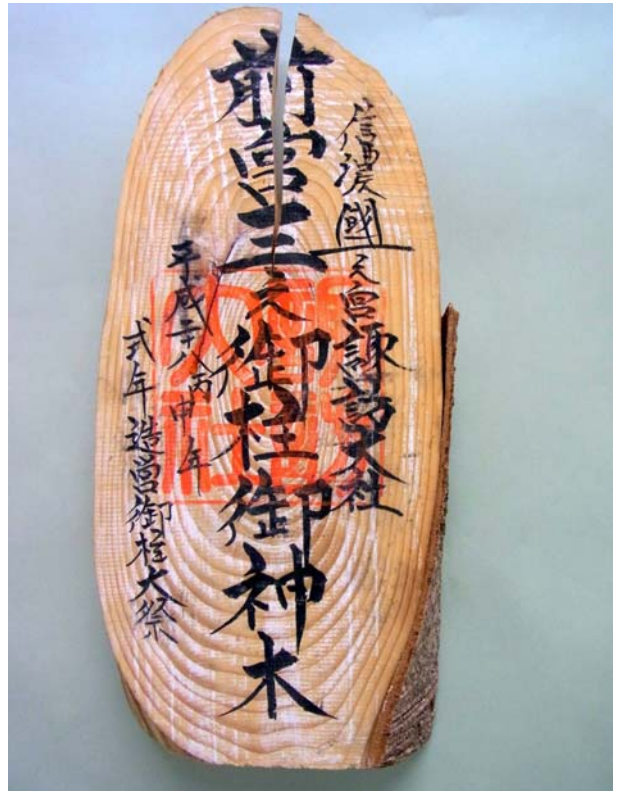 信濃國一之宮諏訪大社
前宮三之御柱御神木
平成二十八丙申年
式年造営御柱大祭